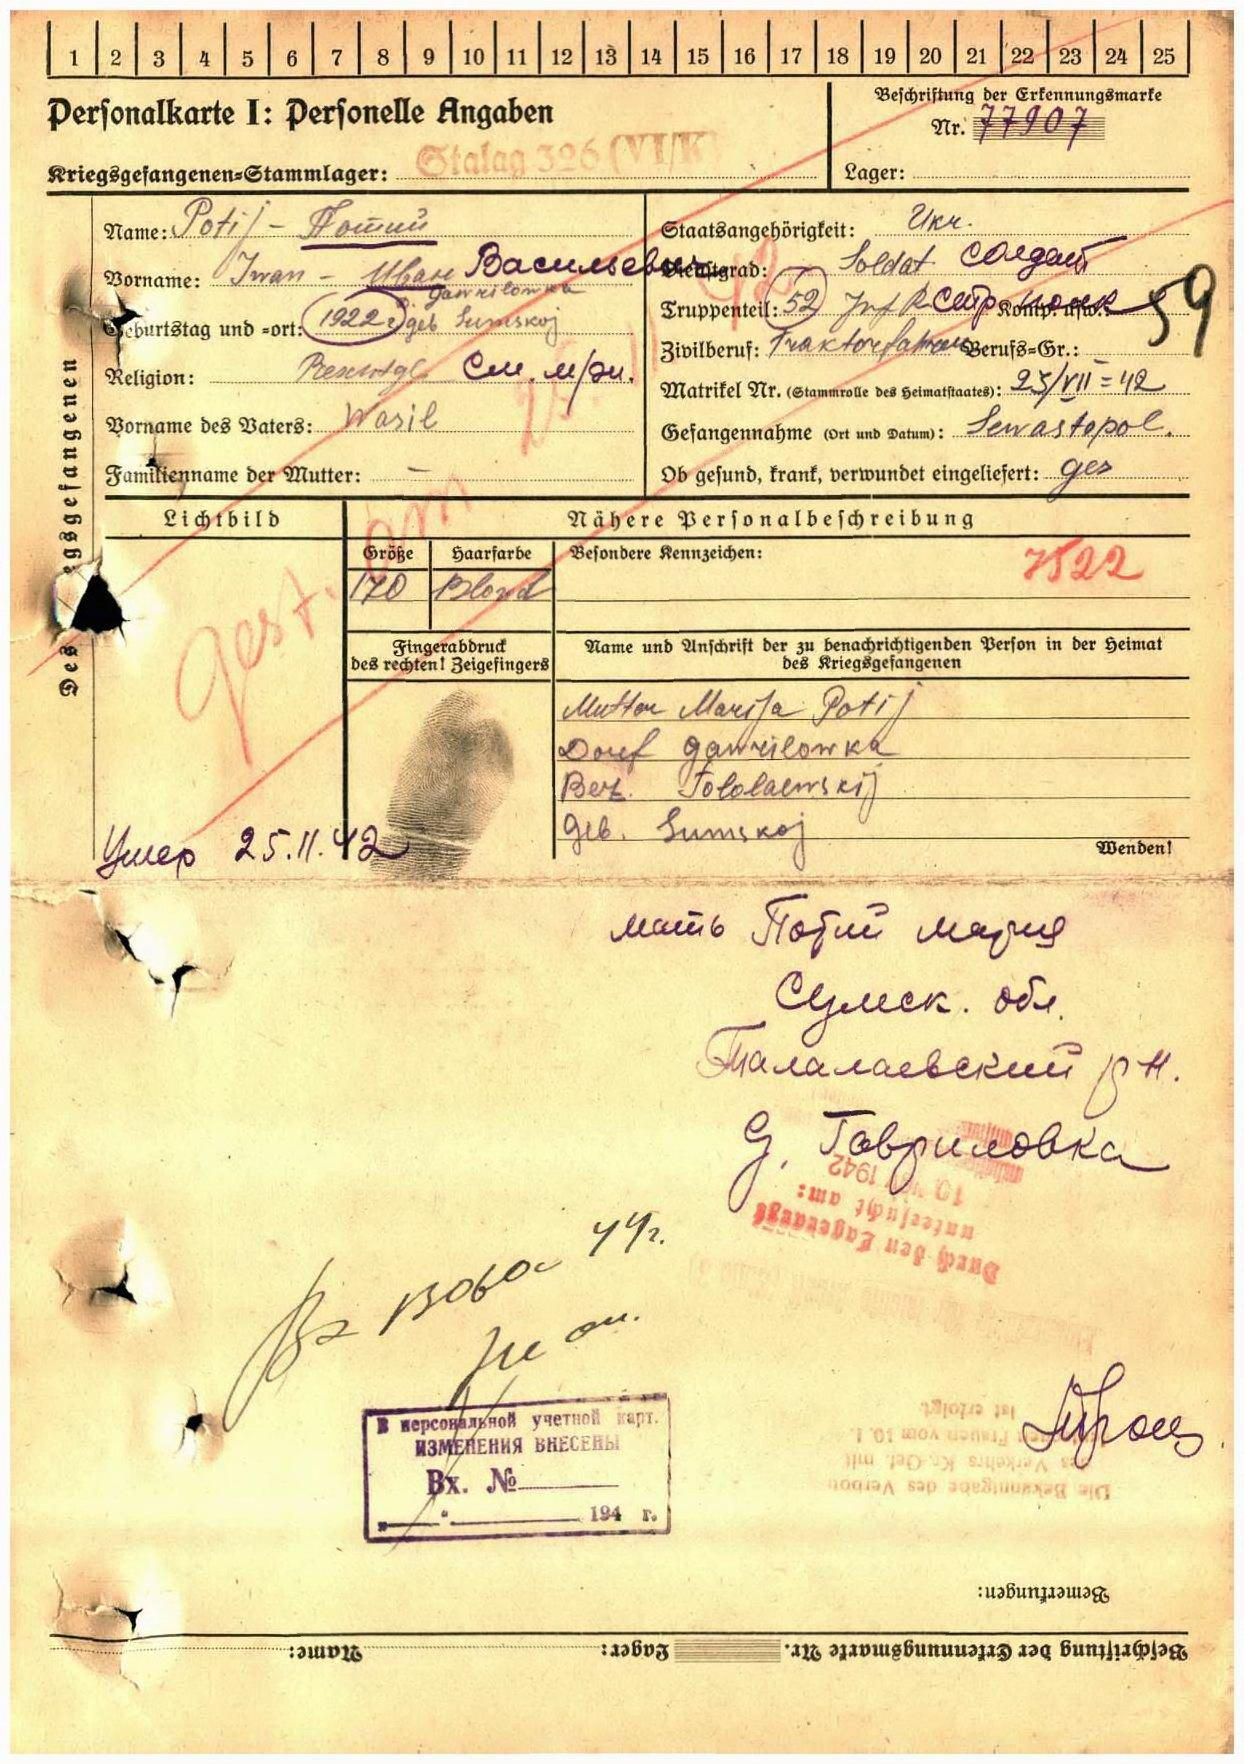 1 2 3 4 5 6 7 8 9 10 11 12 13 14 15 16 17 18 19 20 21 22 23 24 25
Personalkarte I: Personelle Angaben
Beschriftung der Erkennungsmarke
Nr. 77907
Kriegsgefangenen-Stammlager: Stalag 326 (VI/K)
Lager:
Des egsgefangenen
Name: Potij - Потий
Staatsangehörigkeit: Ukr.
Vorname: Iwan - Иван Васильевич
Dienstgrad: Soldat солдат
d. Gawrilowka
Geburtstag und -ort: 1922 г. geb Sumskoj
Truppenteil: 52 Inf R стр полк Komp. usw.:
59
Zivilberuf: Traktorfahrer Berufs-Gr.: —
Religion: См. м/рн.
Matrikel Nr. (Stammrolle des Heimatstaates): 25/VII = 42
Vorname des Vaters: Wasil
Gefangennahme (Ort und Datum): Sewastopol.
Familienname der Mutter: —
Ob gesund, krank, verwundet eingeliefert: ges
gest. am 25.11.42
Lichtbild
Nähere Personalbeschreibung
Größe
Haarfarbe
Besondere Kennzeichen:
7522
170
Blond
Fingerabdruck
des rechten! Zeigefingers
Name und Anschrift der zu benachrichtigenden Person in der Heimat
des Kriegsgefangenen
Mutter Marija Potij
Dorf Gawrilowka
Bez. Tololaewskij
Geb. Sumskoj
Умер 25.11.42
Wenden!
мать Потий Мария
Сумск. обл.
Талалаевский р-н.
д. Гавриловка
10. 1942
untersucht am:
Durch den Lagerarzt
44г.
В персональной учетной карт.
ИЗМЕНЕНИЯ ВНЕСЕНЫ
Вх. №
„ “ 194 г.
ist erfolgt.
Frauen vom 10. 1.
des Verkehrs Kr.-Gef. mit
Die Bekanntgabe des Verbots
Bemerkungen:
Beschriftung der Erkennungsmarke Nr. Lager: Name: